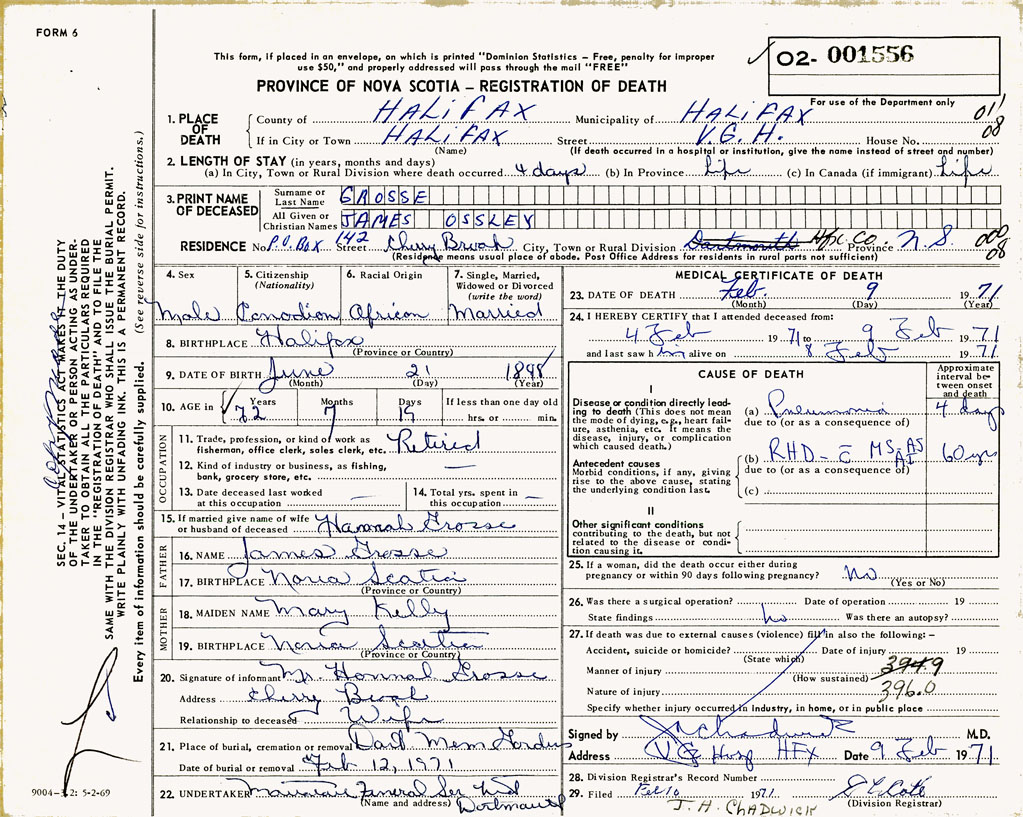 FORM 6
This form, if placed in an envelope, on which is printed "Dominion Statistics – Free, penalty for improper
use $50," and properly addressed will pass through the mail "FREE"
02- 001556
PROVINCE OF NOVA SCOTIA – REGISTRATION OF DEATH
For use of the Department only
1. PLACE OF DEATH
County of HALIFAX Municipality of HALIFAX 011
If in City or Town HALIFAX Street V.G.H. House No. 08
(Name) (If death occurred in a hospital or institution, give the name instead of street and number)
2. LENGTH OF STAY (in years, months and days)
(a) In City, Town or Rural Division where death occurred 4 days (b) In Province Life (c) In Canada (if immigrant) Life
3. PRINT NAME OF DECEASED
Surname or Last Name GROSSE
All Given or Christian Names JAMES OSSLEY
RESIDENCE No. P.O. Box 142 Street Cherry Brook City, Town or Rural Division Dartmouth Hfx. Co. Province N.S. 000
08
(Residence means usual place of abode. Post Office Address for residents in rural parts not sufficient)
4. Sex
5. Citizenship (Nationality)
6. Racial Origin
7. Single, Married, Widowed or Divorced (write the word)
Male Canadian African Married
8. BIRTHPLACE Halifax
(Province or Country)
9. DATE OF BIRTH June 21 1898
(Month) (Day) (Year)
10. AGE in Years Months Days If less than one day old
72 7 19 hrs. or min.
OCCUPATION
11. Trade, profession, or kind of work as
fisherman, office clerk, sales clerk, etc. Retired
12. Kind of industry or business, as fishing,
bank, grocery store, etc. —
13. Date deceased last worked
at this occupation —
14. Total yrs. spent in
this occupation —
15. If married give name of wife
or husband of deceased Hannah Grosse
FATHER
16. NAME James Grosse
17. BIRTHPLACE Nova Scotia
(Province or Country)
MOTHER
18. MAIDEN NAME Mary Kelly
19. BIRTHPLACE Nova Scotia
(Province or Country)
20. Signature of informant Mrs. Hannah Grosse
Address Cherry Brook
Relationship to deceased Wife
21. Place of burial, cremation or removal Dart Mem Gardens
Date of burial or removal Feb 12, 1971
22. UNDERTAKER Funeral Ser
(Name and address) Dartmouth
MEDICAL CERTIFICATE OF DEATH
23. DATE OF DEATH Feb. 9 1971
(Month) (Day) (Year)
24. I HEREBY CERTIFY that I attended deceased from:
4 Feb 1971 to 9 Feb 1971
and last saw him alive on 8 Feb 1971.
CAUSE OF DEATH
Approximate interval between onset and death
I
Disease or condition directly leading to death (This does not mean
the mode of dying, e.g., heart failure, asthenia, etc. It means the
disease, injury, or complication
which caused death.)
(a) Pneumonia 4 days
due to (or as a consequence of)
Antecedent causes
Morbid conditions, if any, giving
rise to the above cause, stating
the underlying condition last.
(b) RHD - c̄ MS AS AI 60 yrs
due to (or as a consequence of)
(c)
II
Other significant conditions
contributing to the death, but not
related to the disease or condition causing it.
25. If a woman, did the death occur either during
pregnancy or within 90 days following pregnancy? No
(Yes or No)
26. Was there a surgical operation? Date of operation 19
State findings no Was there an autopsy?
27. If death was due to external causes (violence) fill in also the following: –
Accident, suicide or homicide? Date of injury 19
(State which)
Manner of injury 394.9
(How sustained)
Nature of injury 396.0
Specify whether injury occurred in industry, in home, or in public place
Signed by J H Chadwick M.D.
Address V G Hosp HFX Date 9 Feb 1971
28. Division Registrar's Record Number
29. Filed Feb 10 1971
(Division Registrar)
J. H. CHADWICK
9004-3.2: 5-2-69
SEC. 14 – VITAL STATISTICS ACT MAKES IT THE DUTY
OF THE UNDERTAKER OR PERSON ACTING AS UNDERTAKER TO OBTAIN ALL THE PARTICULARS REQUIRED
IN THE "REGISTRATION OF DEATH" AND TO FILE THE
SAME WITH THE DIVISION REGISTRAR WHO SHALL ISSUE THE BURIAL PERMIT.
WRITE PLAINLY WITH UNFADING INK. THIS IS A PERMANENT RECORD.
Every item of information should be carefully supplied. (See reverse side for instructions.)